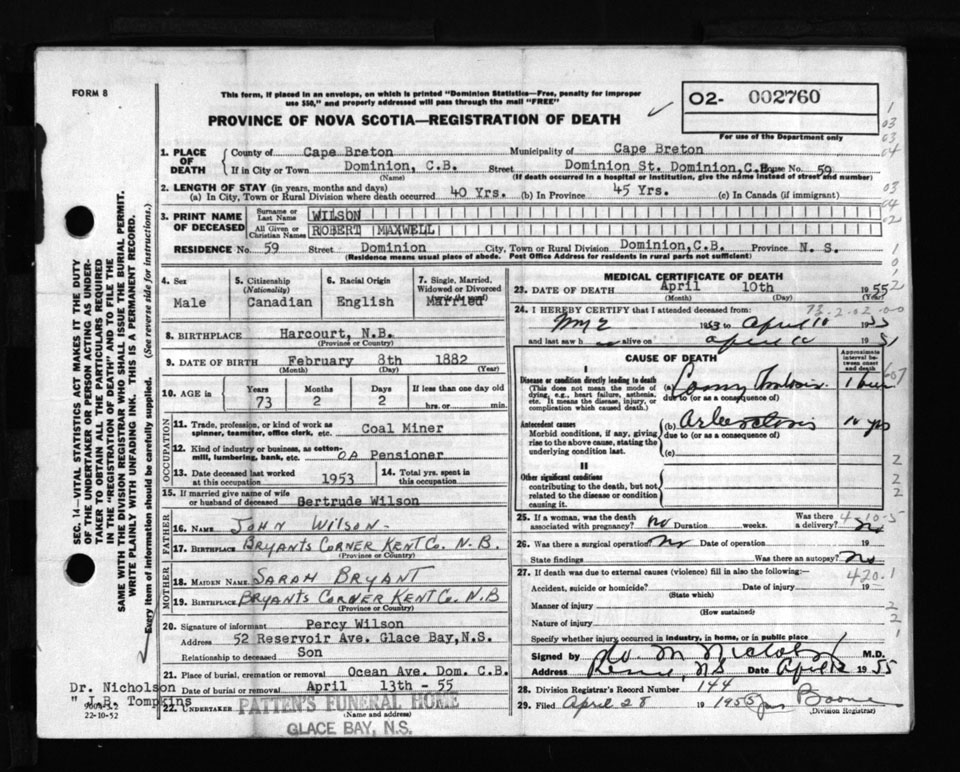 FORM 8
This form, if placed in an envelope, on which is printed "Dominion Statistics—Free, penalty for improper
use $50," and properly addressed will pass through the mail "FREE"
PROVINCE OF NOVA SCOTIA—REGISTRATION OF DEATH
O2- 002760
For use of the Department only
1. PLACE OF DEATH County of Cape Breton Municipality of Cape Breton
If in City or Town Dominion, C.B. Street Dominion St. Dominion,C.B. House No. 59
(Name) (If death occurred in a hospital or institution, give the name instead of street and number)
2. LENGTH OF STAY (in years, months and days)
(a) In City, Town or Rural Division where death occurred 40 Yrs. (b) In Province 45 Yrs. (c) In Canada (if immigrant)
3. PRINT NAME OF DECEASED Surname or Last Name WILSON
All Given or Christian Names ROBERT MAXWELL
RESIDENCE No. 59 Street Dominion City, Town or Rural Division Dominion,C.B. Province N. S.
(Residence means usual place of abode. Post Office Address for residents in rural parts not sufficient)
4. Sex Male
5. Citizenship (Nationality) Canadian
6. Racial Origin English
7. Single, Married, Widowed or Divorced Married
8. BIRTHPLACE Harcourt, N.B.
(Province or Country)
9. DATE OF BIRTH February 8th 1882
(Month) (Day) (Year)
10. AGE in Years 73 Months 2 Days 2 If less than one day old hrs. or min.
OCCUPATION
11. Trade, profession, or kind of work as spinner, teamster, office clerk, etc. Coal Miner
12. Kind of industry or business, as cotton mill, lumbering, bank, etc. OA Pensioner
13. Date deceased last worked at this occupation 1953
14. Total yrs. spent in this occupation
15. If married give name of wife or husband of deceased Gertrude Wilson
FATHER
16. NAME JOHN WILSON
17. BIRTHPLACE BRYANTS CORNER KENT CO. N.B.
(Province or Country)
MOTHER
18. MAIDEN NAME SARAH BRYANT
19. BIRTHPLACE BRYANTS CORNER KENT CO. N.B
(Province or Country)
20. Signature of informant Percy Wilson
Address 52 Reservoir Ave. Glace Bay,N.S.
Relationship to deceased Son
21. Place of burial, cremation or removal Ocean Ave. Dom. C.B.
Date of burial or removal April 13th - 55
22. UNDERTAKER PATTEN'S FUNERAL HOME
(Name and address)
GLACE BAY, N.S.
MEDICAL CERTIFICATE OF DEATH
23. DATE OF DEATH April 10th 1955
(Month) (Day) (Year)
24. I HEREBY CERTIFY that I attended deceased from:
1953 to April 10 1955
and last saw h alive on April 10 19
CAUSE OF DEATH
Approximate interval between onset and death
I
Disease or condition directly leading to death (a)
(This does not mean the mode of dying, e.g., heart failure, asthenia, etc. It means the disease, injury, or complication which caused death.)
due to (or as a consequence of)
Antecedent causes (b) 10 yrs
Morbid conditions, if any, giving rise to the above cause, stating the underlying condition last.
due to (or as a consequence of)
(c)
II
Other significant conditions
contributing to the death, but not related to the disease or condition causing it.
25. If a woman, was the death associated with pregnancy? No Duration weeks. Was there a delivery? No
4-10-5
26. Was there a surgical operation? No Date of operation 19
State findings Was there an autopsy? No
27. If death was due to external causes (violence) fill in also the following:—
420.1
Accident, suicide or homicide? Date of injury 19
(State which)
Manner of injury
(How sustained)
Nature of injury
Specify whether injury occurred in industry, in home, or in public place
Signed by M.D.
Address N.S Date April 12 1955
28. Division Registrar's Record Number 144
29. Filed April 28 19 1955 Boone
(Division Registrar)
SEC. 14—VITAL STATISTICS ACT MAKES IT THE DUTY
OF THE UNDERTAKER OR PERSON ACTING AS UNDER-
TAKER TO OBTAIN ALL THE PARTICULARS REQUIRED
IN THE "REGISTRATION OF DEATH" AND TO FILE THE
SAME WITH THE DIVISION REGISTRAR WHO SHALL ISSUE THE BURIAL PERMIT.
WRITE PLAINLY WITH UNFADING INK. THIS IS A PERMANENT RECORD.
Every item of information should be carefully supplied. (See reverse side for instructions.)
Dr. Nicholson
" I.B. Tompkins
22-10-52